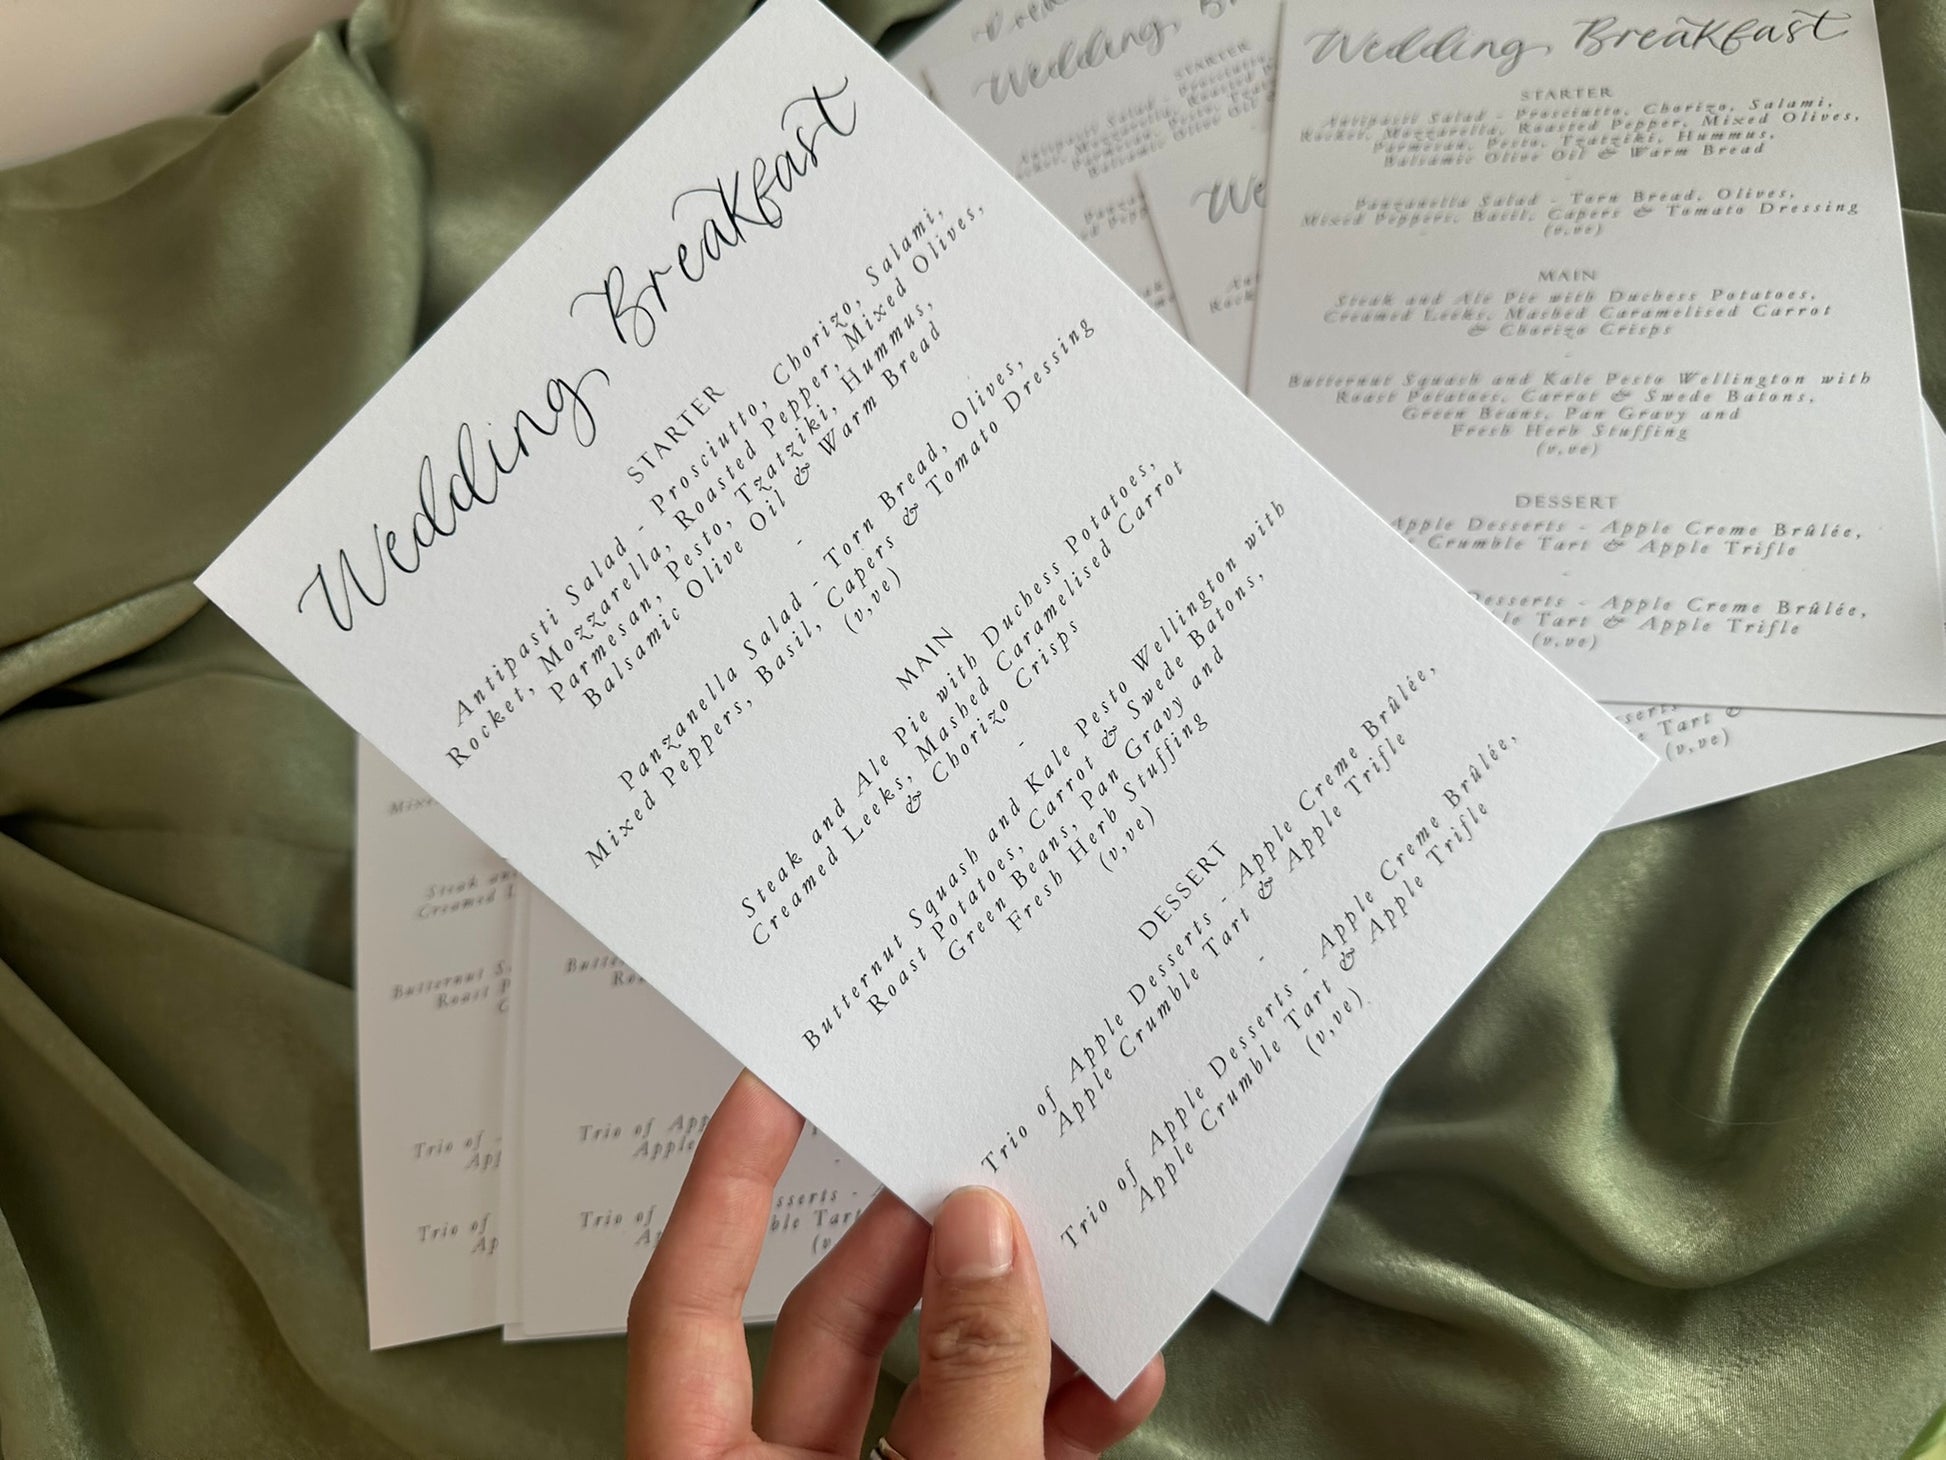 Wedding Breakfast
STARTER
Antipasti Salad - Prosciutto, Chorizo, Salami,
Rocket, Mozzarella, Roasted Pepper, Mixed Olives,
Parmesan, Pesto, Tzatziki, Hummus,
Balsamic Olive Oil & Warm Bread
-
Panzanella Salad - Torn Bread, Olives,
Mixed Peppers, Basil, Capers & Tomato Dressing
(v,ve)
MAIN
Steak and Ale Pie with Duchess Potatoes,
Creamed Leeks, Mashed Caramelised Carrot
& Chorizo Crisps
-
Butternut Squash and Kale Pesto Wellington with
Roast Potatoes, Carrot & Swede Batons,
Green Beans, Pan Gravy and
Fresh Herb Stuffing
(v,ve)
DESSERT
Trio of Apple Desserts - Apple Creme Brûlée,
Apple Crumble Tart & Apple Trifle
-
Trio of Apple Desserts - Apple Creme Brûlée,
Apple Crumble Tart & Apple Trifle
(v,ve)
Wedding Breakfast
STARTER
Antipasti Salad - Prosciutto, Chorizo, Salami,
Rocket, Mozzarella, Roasted Pepper, Mixed Olives,
Parmesan, Pesto, Tzatziki, Hummus,
Balsamic Olive Oil & Warm Bread
-
Panzanella Salad - Torn Bread, Olives,
Mixed Peppers, Basil, Capers & Tomato Dressing
(v,ve)
MAIN
Steak and Ale Pie with Duchess Potatoes,
Creamed Leeks, Mashed Caramelised Carrot
& Chorizo Crisps
-
Butternut Squash and Kale Pesto Wellington with
Roast Potatoes, Carrot & Swede Batons,
Green Beans, Pan Gravy and
Fresh Herb Stuffing
(v,ve)
DESSERT
Apple Desserts - Apple Creme Brûlée,
Crumble Tart & Apple Trifle
-
Desserts - Apple Creme Brûlée,
Tart & Apple Trifle
(v,ve)
Wedding
STARTER
Antipasti Salad -
Tart &
(v,ve)
Steak
Creamed
Butternut
Roast
Trio of
Trio of
Trio of
Apple
Trio of
Tart